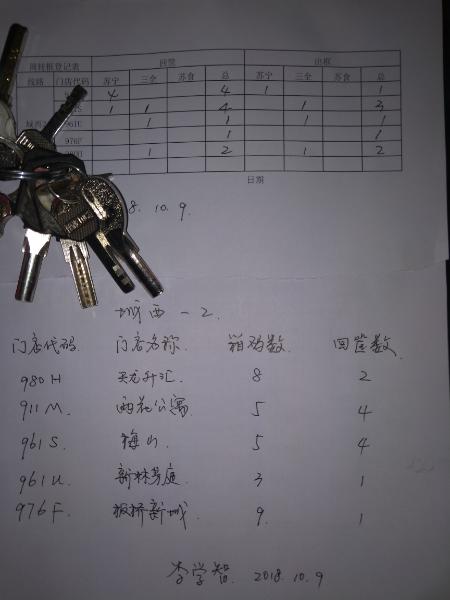 周转框登记表 回筐 出框
线路 门店代码 苏宁 三全 苏食 总 苏宁 三全 苏食 总
4 4 1 1
1 1 4 1 3
961U 1 1 1 1
976F 1 1
1 2 1 2
日期
8. 10. 9.
城西-2.
门店代码. 门店名称. 箱码数. 回筐数.
980H 天龙升汇. 8 2
911M. 雨花公寓 5 4
961S. 梅山. 5 4
961U. 新林芳庭 3 1
976F. 板桥新城. 9. 1
李学智. 2018. 10. 9